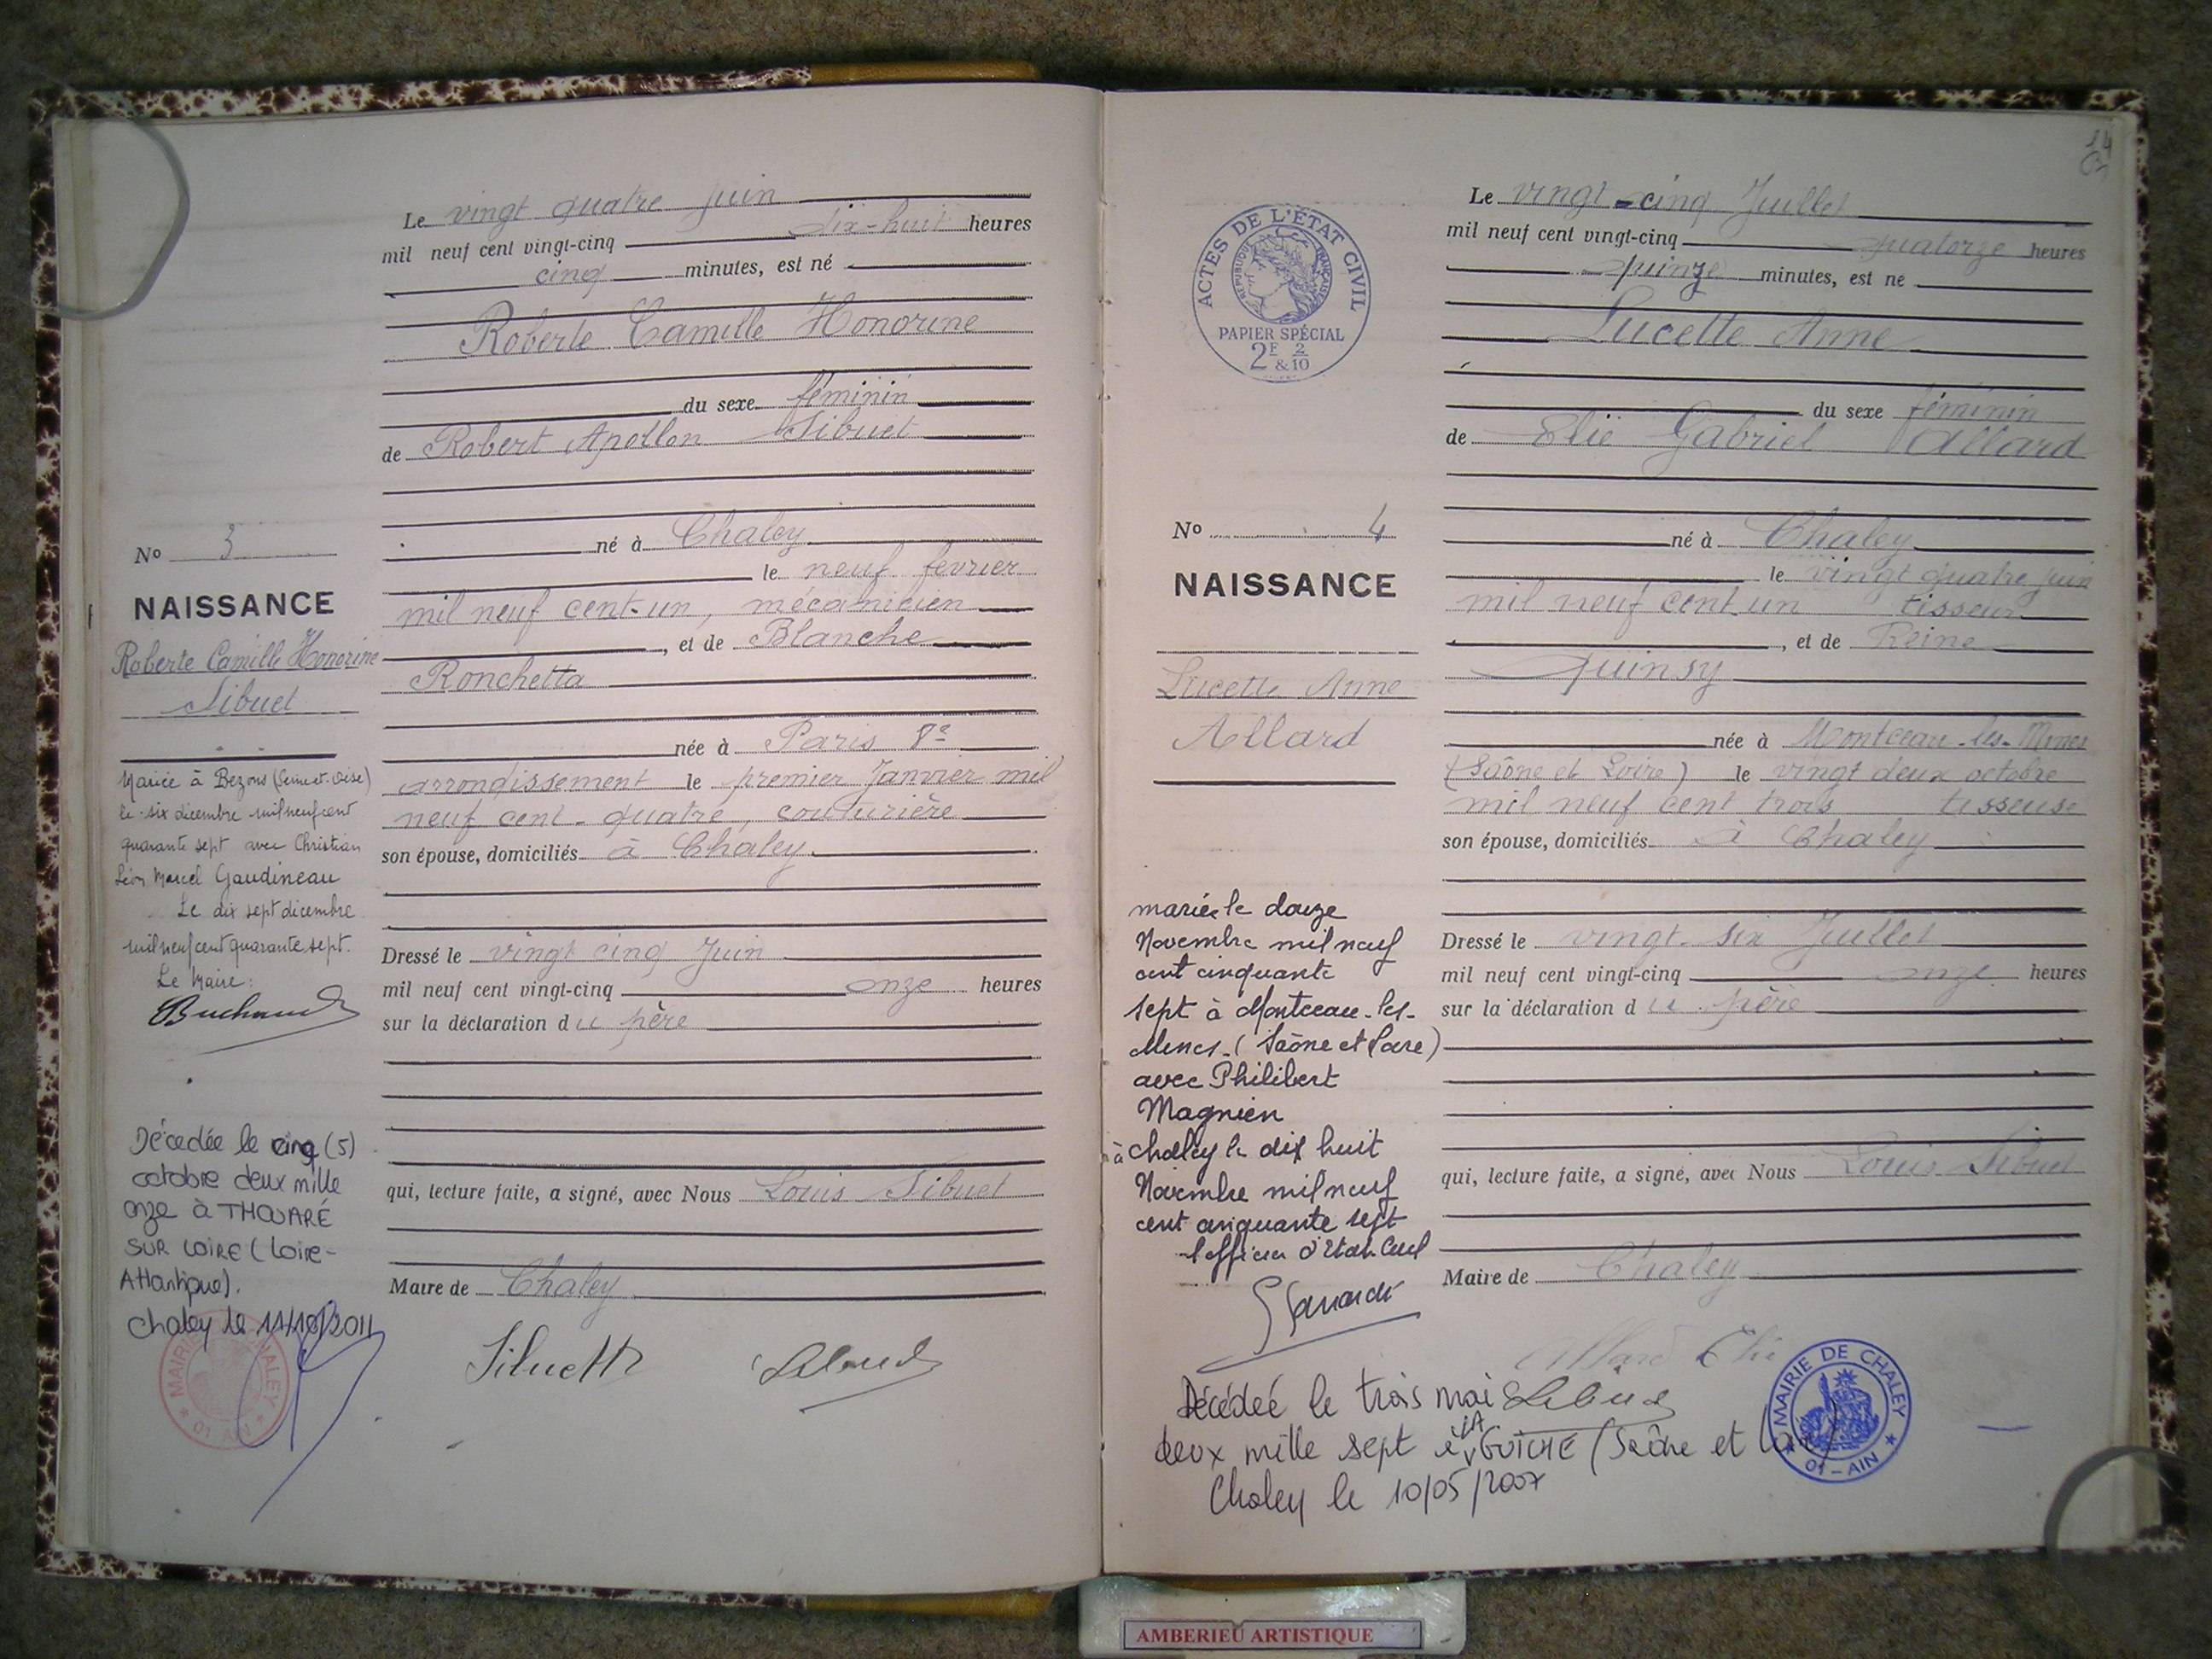 Le vingt quatre juin
mil neuf cent vingt-cinq dix-huit heures
cinq minutes, est né
Roberte Camille Honorine
du sexe féminin
de Robert Apollon Sibuet
né à Chaley
le neuf fevrier
mil neuf cent-un, mécanicien
, et de Blanche
Ronchetta
née à Paris Ve
arrondissement le premier Janvier mil
neuf cent-quatre, couturière
son épouse, domiciliés à Chaley
Dressé le vingt cinq Juin
mil neuf cent vingt-cinq onze heures
sur la déclaration du père
qui, lecture faite, a signé, avec Nous Louis Sibuet
Maire de Chaley
No 3
NAISSANCE
Roberte Camille Honorine
Sibuet
Mariée à Bezons (Seine et Oise)
le six décembre mil neuf cent
quarante sept avec Christian
Léon Marcel Gaudineau
Le dix sept décembre
mil neuf cent quarante sept.
Le Maire:
Décedée le cinq (5)
octobre deux mille
onze à THOUARÉ
SUR LOIRE (Loire-
Atlantique).
Chaley le 11/10/2011
MAIRIE DE CHALEY
* 01 AIN *
14
ACTES DE L'ÉTAT CIVIL
RÉPUBLIQUE FRANÇAISE
PAPIER SPÉCIAL
2F & 2/10
Le vingt-cinq Juillet
mil neuf cent vingt-cinq quatorze heures
quinze minutes, est né
Lucette Anne
du sexe féminin
de Elie Gabriel Allard
né à Chaley
le vingt quatre juin
mil neuf cent un tisseur
, et de Reine
Quinsy
née à Montceau-les-Mines
(Saône et Loire) le vingt deux octobre
mil neuf cent trois tisseuse
son épouse, domiciliés à Chaley
Dressé le vingt-six Juillet
mil neuf cent vingt-cinq onze heures
sur la déclaration du père
qui, lecture faite, a signé, avec Nous Louis Sibuet
Maire de Chaley
No 4
NAISSANCE
Lucette Anne
Allard
mariée le douze
Novembre mil neuf
cent cinquante
sept à Montceau-les-
Mines (Saône et Loire)
avec Philibert
Magnien
à Chaley le dix huit
Novembre mil neuf
cent cinquante sept
l'officier d'Etat Civil
Allard Elie
Décédée le trois mai
deux mille sept à LA GUICHE (Saône et Loire)
Chaley le 10/05/2007
MAIRIE DE CHALEY
* 01-AIN *
AMBERIEU ARTISTIQUE